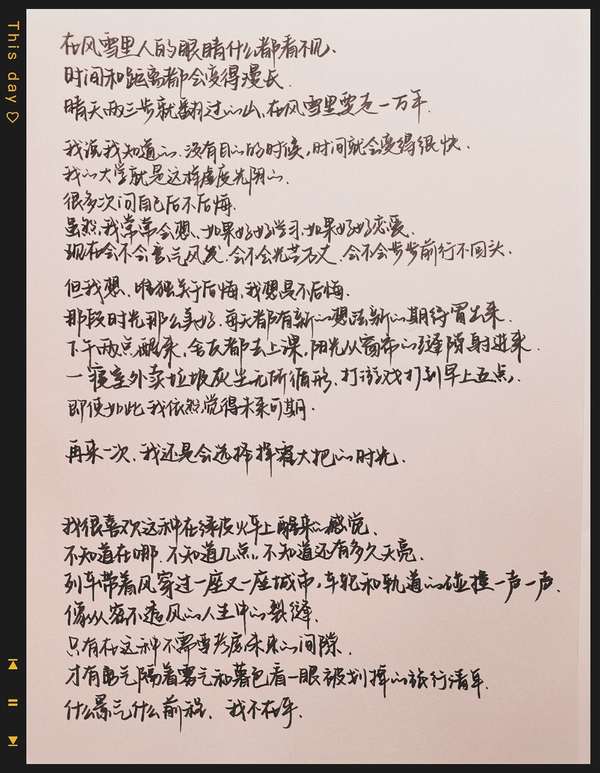 This day ♡
在风雪里人的眼睛什么都看不见.
时间和距离都会变得漫长.
晴天两三步就翻过的山,在风雪里要走一万年.
我说我知道的.没有目的的时候,时间就会变得很快.
我的大学就是这样虚度光阴的.
很多次问自己后不后悔.
虽然我常常会想,如果好好学习,如果好好恋爱.
现在会不会意气风发.会不会光芒万丈.会不会步步前行不回头.
但我想,唯独关于后悔,我想是不后悔.
那段时光那么美好.每天都有新的想法新的期待冒出来.
下午两点醒来,舍友都去上课,阳光从窗帘的缝隙射进来.
一寝室外卖垃圾灰尘无所循形.打游戏打到早上五点.
即使如此我依然觉得未来可期.
再来一次.我还是会选择挥霍大把的时光.
我很喜欢这种在绿皮火车上醒来的感觉.
不知道在哪.不知道几点.不知道还有多久天亮.
列车带着风穿过一座又一座城市,车轮和轨道的碰撞一声一声.
像从密不透风的人生中的裂缝.
只有在这种不需要考虑未来的间隙.
才有勇气隔着雾气和暮色看一眼被划掉的旅行清单.
什么景气什么前程. 我不在乎.